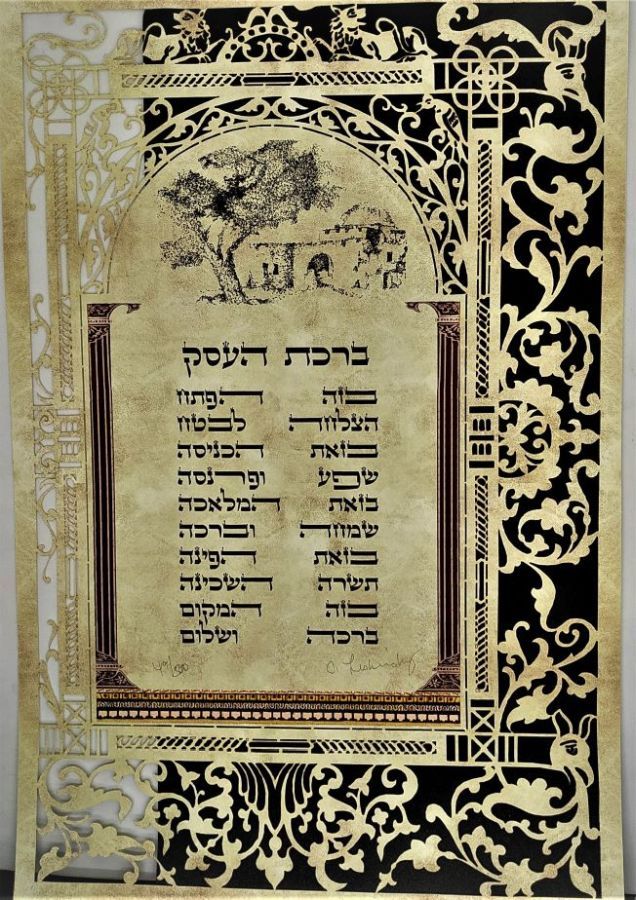 ברכת העסק
בזה הפתח
הצלחה לבטח
בזאת הכניסה
שפע ופרנסה
בזאת המלאכה
שמחה וברכה
בזאת הפינה
תשרה השכינה
בזה המקום
ברכה ושלום